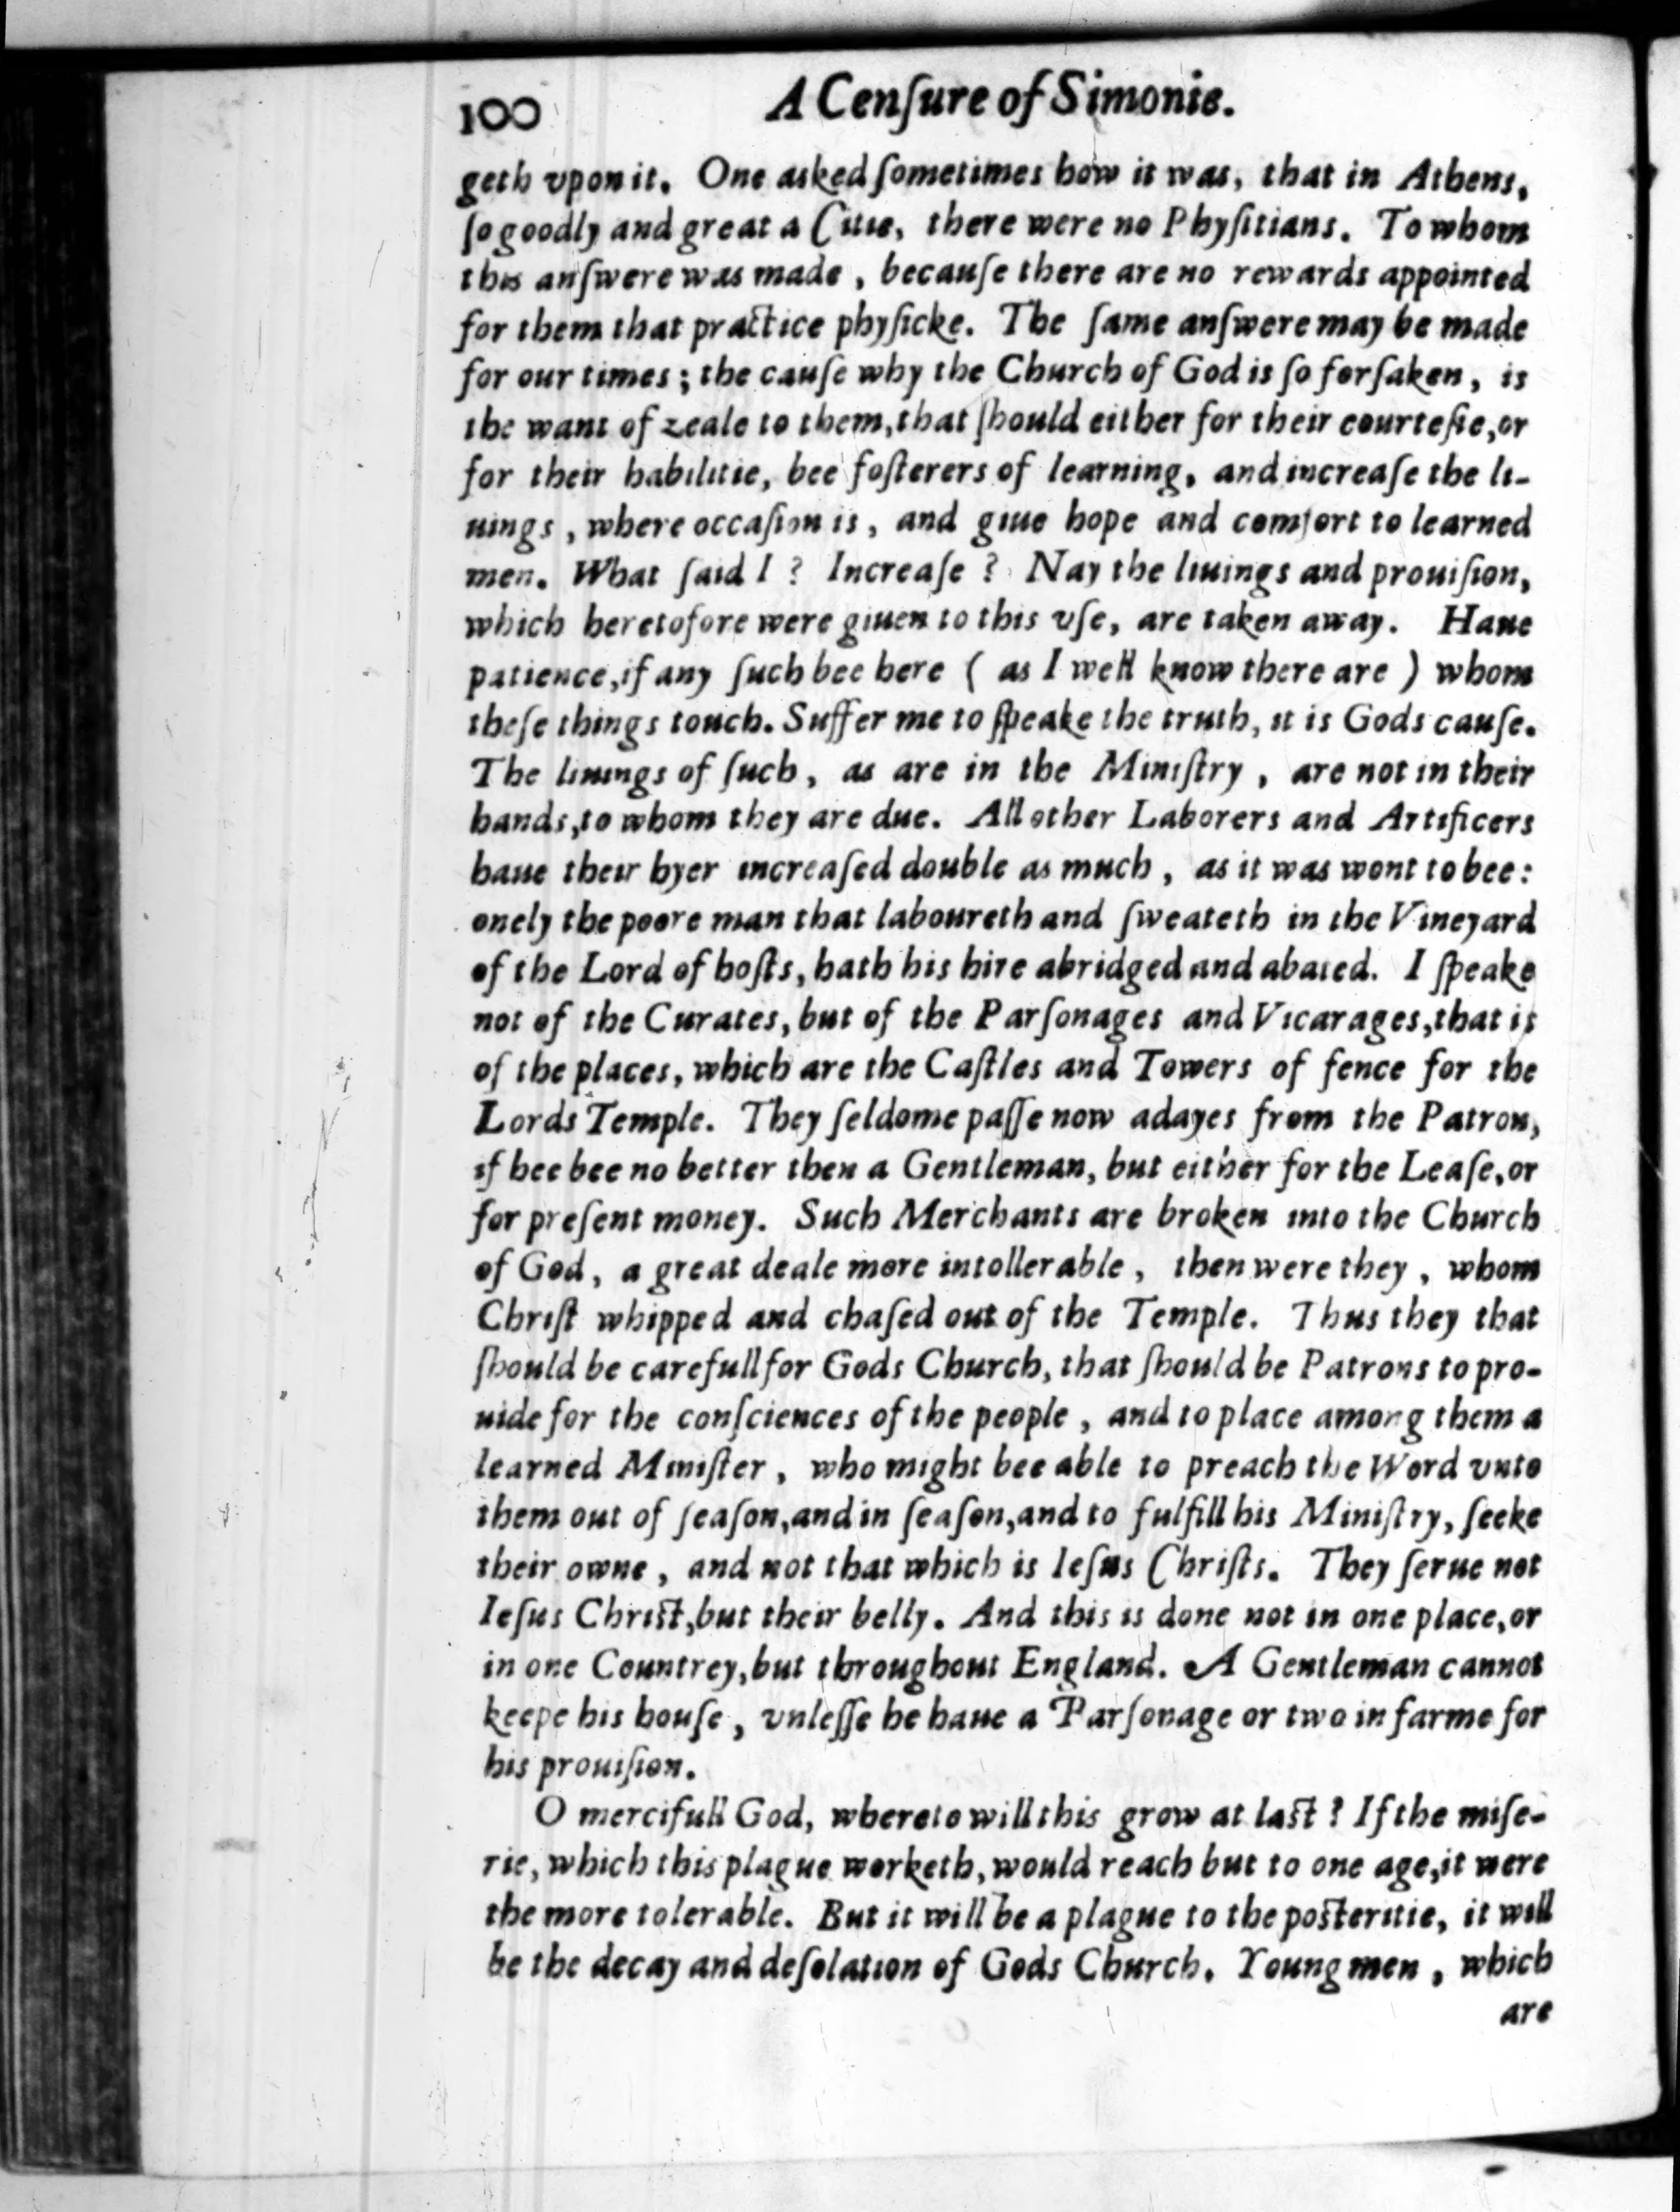 100
A Cenſure of Simonie.
geth vpon it. One asked ſometimes how it was, that in Athens,
ſo goodly and great a Citie, there were no Phyſitians. To whom
this anſwere was made, becauſe there are no rewards appointed
for them that practice phyſicke. The ſame anſwere may be made
for our times; the cauſe why the Church of God is ſo forſaken, is
the want of zeale to them, that ſhould either for their courteſie, or
for their habilitie, bee foſterers of learning, and increaſe the li-
uings, where occaſion is, and giue hope and comfort to learned
men. What ſaid I? Increaſe? Nay the liuings and prouiſion,
which heretofore were giuen to this vſe, are taken away. Haue
patience, if any ſuch bee here ( as I well know there are ) whom
theſe things touch. Suffer me to ſpeake the truth, it is Gods cauſe.
The liuings of ſuch, as are in the Miniſtry, are not in their
hands, to whom they are due. All other Laborers and Artificers
haue their hyer increaſed double as much, as it was wont to bee:
onely the poore man that laboureth and ſweateth in the Vineyard
of the Lord of hoſts, hath his hire abridged and abated. I ſpeake
not of the Curates, but of the Parſonages and Vicarages, that is
of the places, which are the Caſtles and Towers of fence for the
Lords Temple. They ſeldome paſſe now adayes from the Patron,
if hee bee no better then a Gentleman, but either for the Leaſe, or
for preſent money. Such Merchants are broken into the Church
of God, a great deale more intollerable, then were they, whom
Chriſt whipped and chaſed out of the Temple. Thus they that
ſhould be carefull for Gods Church, that ſhould be Patrons to pro-
uide for the conſciences of the people, and to place among them a
learned Miniſter, who might bee able to preach the Word vnto
them out of ſeaſon, and in ſeaſon, and to fulfill his Miniſtry, ſeeke
their owne, and not that which is Ieſus Chriſts. They ſerue not
Ieſus Chriſt, but their belly. And this is done not in one place, or
in one Countrey, but throughout England. A Gentleman cannot
keepe his houſe, vnleſſe he haue a Parſonage or two in farme for
his prouiſion.
O mercifull God, whereto will this grow at laſt? If the miſe-
rie, which this plague worketh, would reach but to one age, it were
the more tolerable. But it will be a plague to the poſteritie, it will
be the decay and deſolation of Gods Church. Young men, which
are